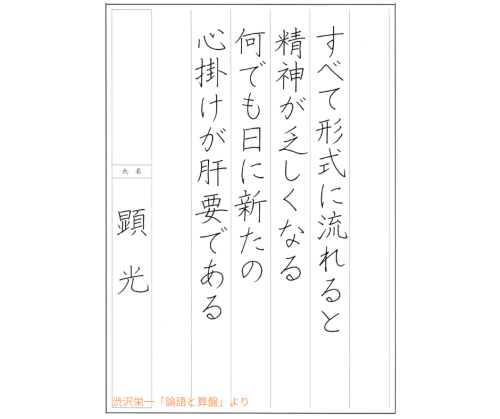 すべて形式に流れると
精神が乏しくなる
何でも日に新たの
心掛けが肝要である
氏名
顕光
渋沢栄一「論語と算盤」より